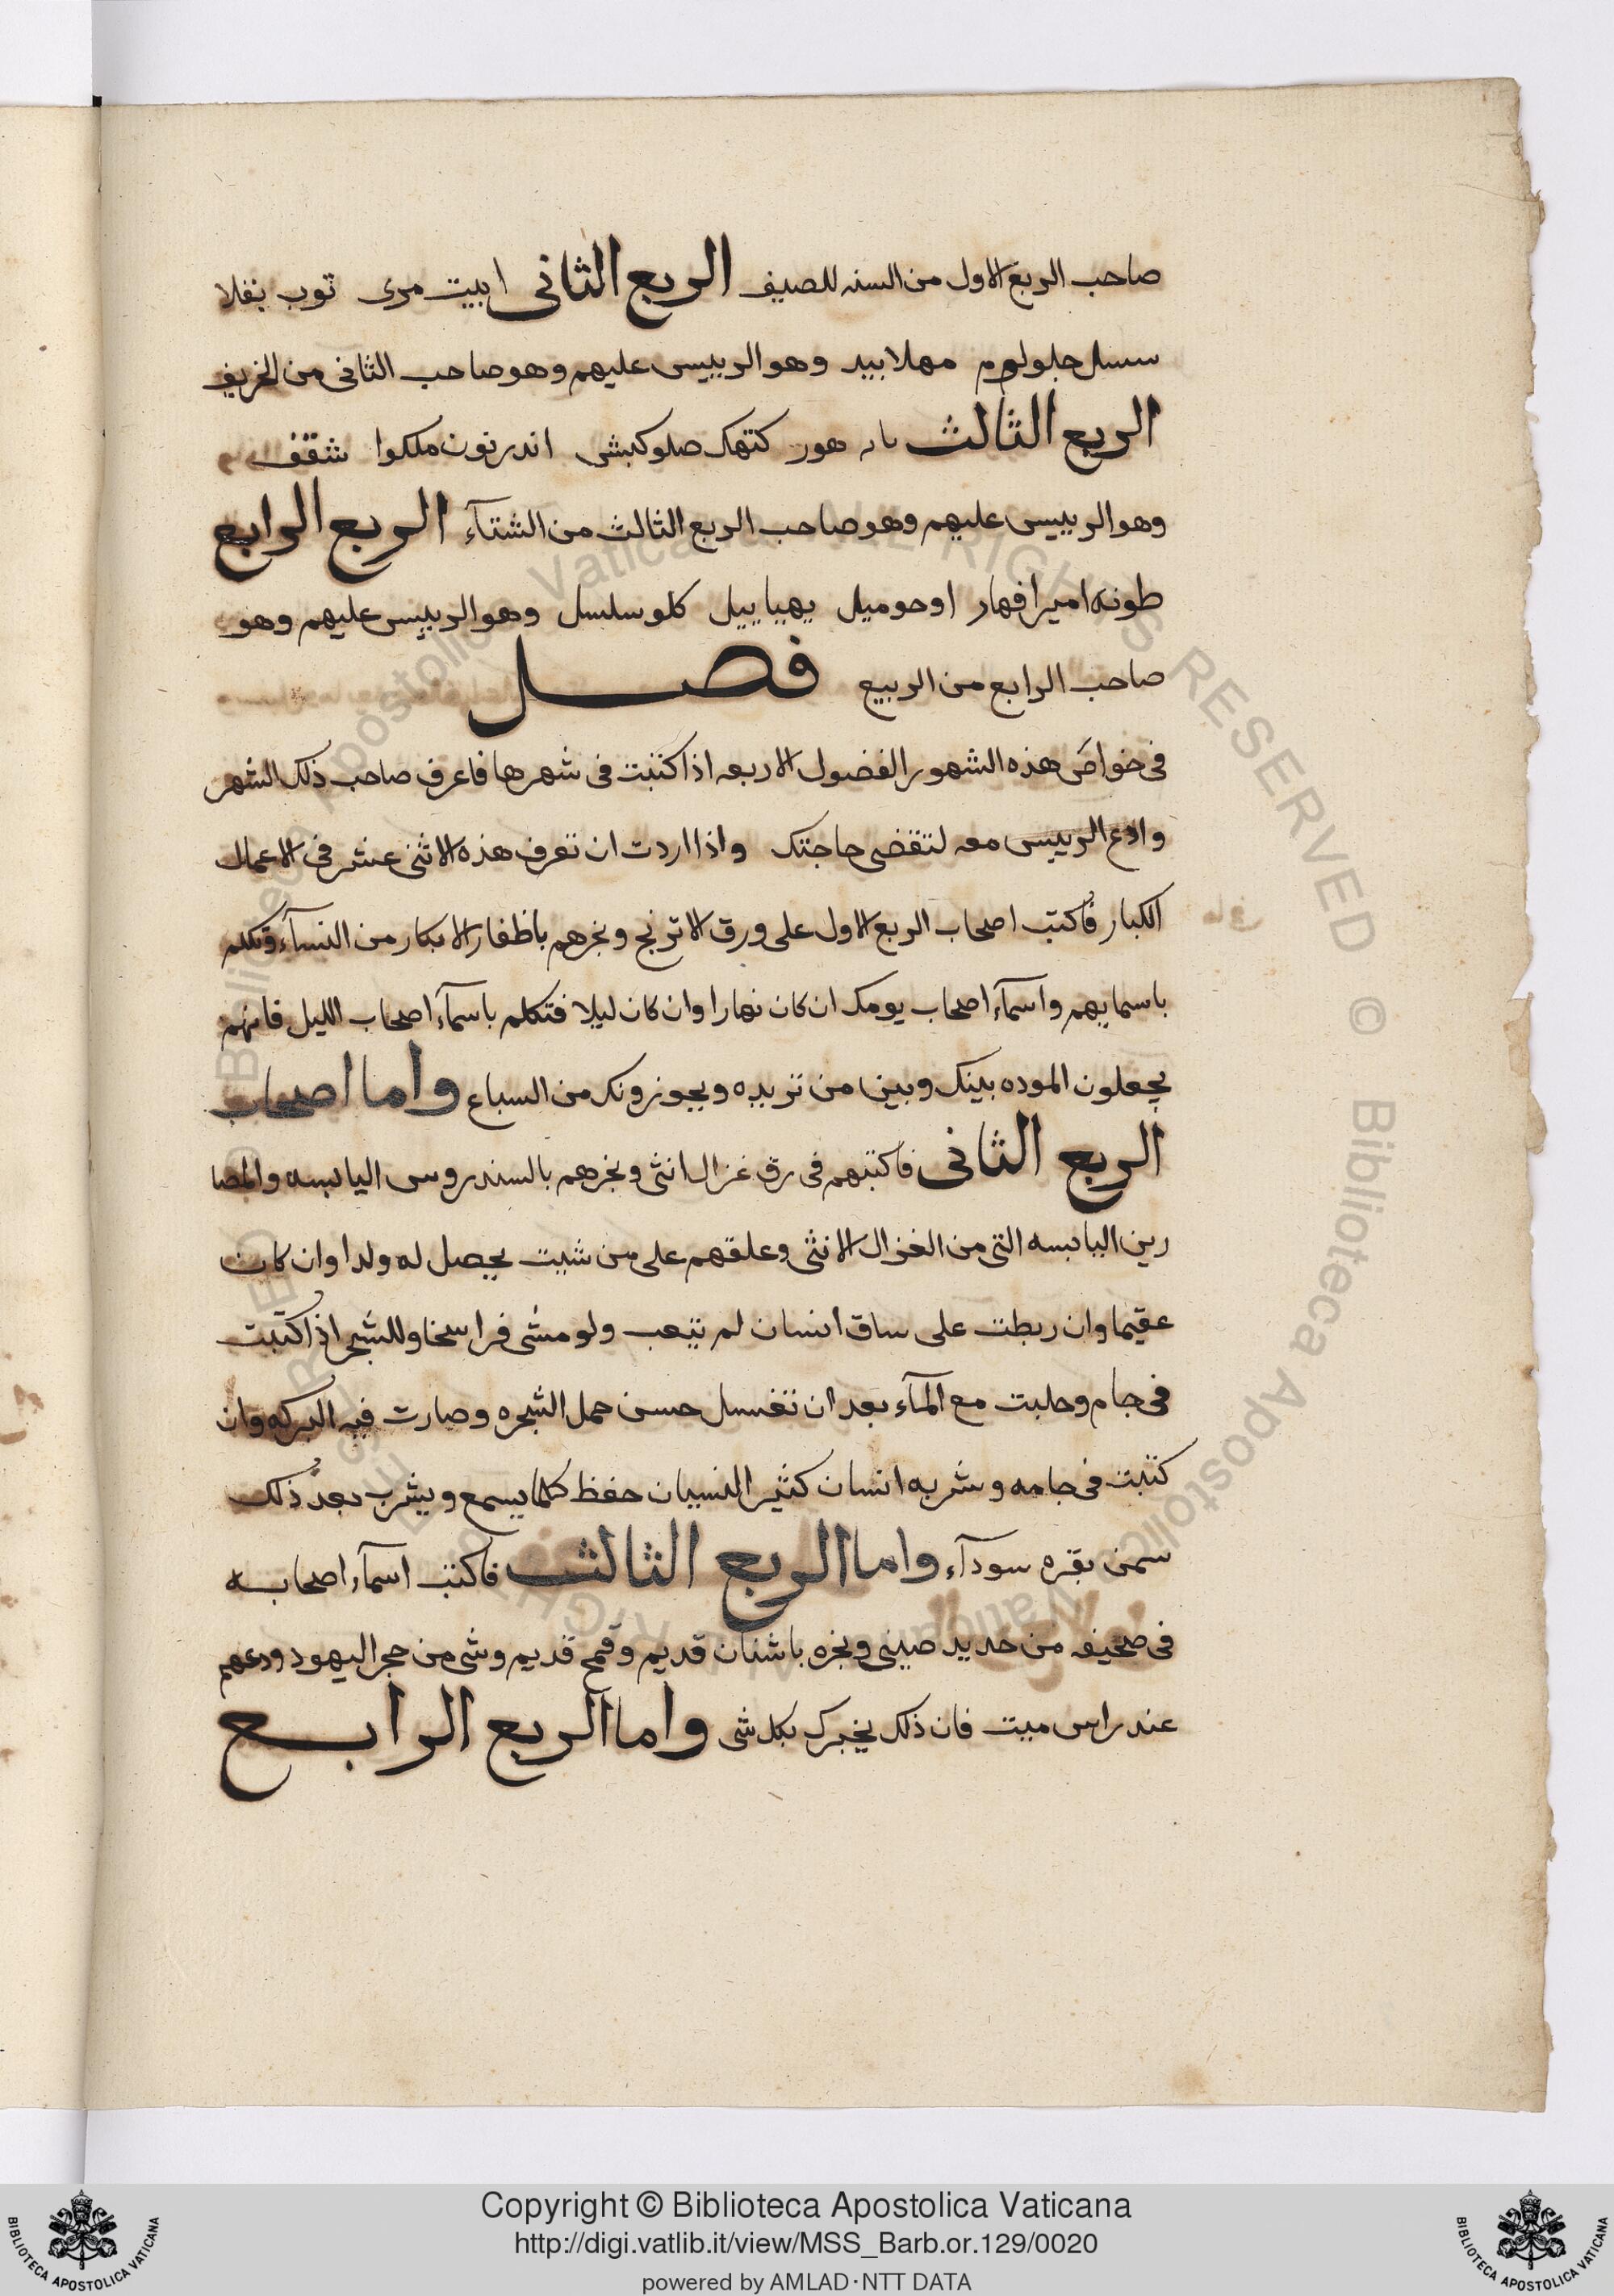 صاحب الربع الاول من السنه للصيف الربع الثانى ابيت مرى توب بقلا
سسل جلولوم مهلابيد وهو الرييس عليهم وهو صاحب الثانى من الخريف
الربع الثالث هور كتهك صلو كبشى اندرنون ملكوا شقف
وهو الرييس عليهم وهو صاحب الربع الثالث من الشتآء الربع الرابع
طونه امير افهار اوحوميل يهياييل كلو سلسل وهو الرييس عليهم وهو
صاحب الرابع من الربيع فصل
فى خواص هذه الشهور الفضول الاربعه اذا كتبت فى شهرها فاعرف صاحب ذلك الشهر
وادع الرييس معه لتقضى حاجتك واذا اردت ان تعرف هذه الاثنى عشر فى الاعمال
الكبار فاكتب اصحاب الربع الاول على ورق الاترنج وبخرهم باظفار الابكار من النسآء وتكلم
باسمايهم واسمآء اصحاب يومك ان كان نهارا وان كان ليلا فتكلم باسمآء اصحاب الليل فانهم
يجعلون الموده بينك وبين من تريده ويجوزونك من السباع واما اصحاب
الربع الثانى فاكتبهم فى رق غزال انثى وبخرهم بالسندروس اليابسه والمصا
رين اليابسه التى من الغزال الانثى وعلقهم على من شيت يحصل له ولدا وان كان
عقيما وان ربطت على ساق انسان لم يتعب ولو مشى فراسخا وللشجر اذا كتبت
فى جام وحلبت مع المآء بعد ان تغسل حسن حمل الشجره وصارت فيه البركه وان
كتبت فى جامه وشربه انسان كثير النسيان حفظ كلما يسمع ويشرب بعد ذلك
سمن بقره سودآء واما الربع الثالث فاكتب اسمآء اصحابه
فى صحيفه من حديد صينى وبخره باشنان قديم وقمح قديم وشى من حجر اليهود ودعهم
عند راس ميت فان ذلك يخبرك بكل شى واما الربع الرابع
Copyright © Biblioteca Apostolica Vaticana
http://digi.vatlib.it/view/MSS_Barb.or.129/0020
powered by AMLAD·NTT DATA
BIBLIOTECA APOSTOLICA VATICANA
BIBLIOTECA APOSTOLICA VATICANA